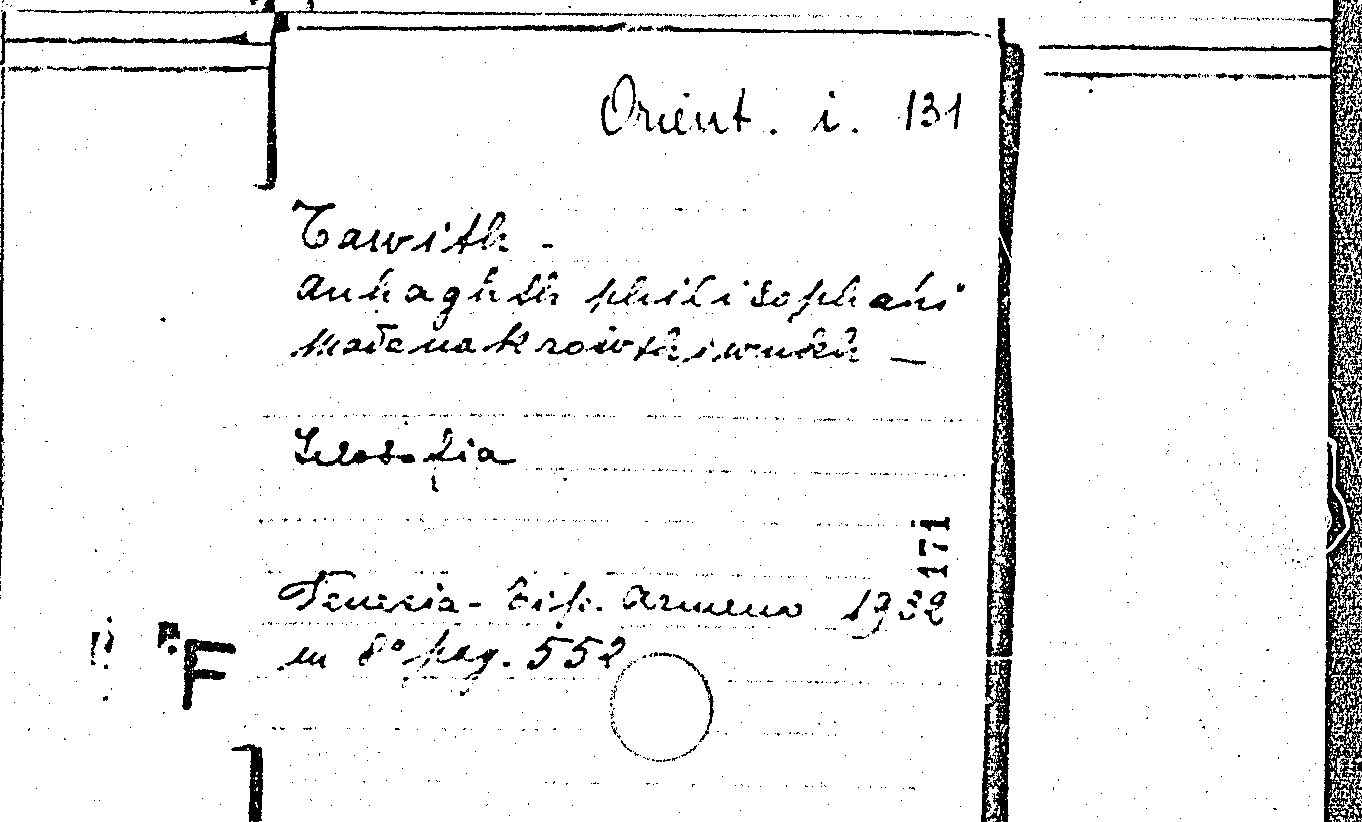 Orient. i. 131
Tawith -
anhaghth philisophañi
matenakrowthiwnkh —
Filosofia
171
Venezia - tip. Armeno 1932
in 8° pag. 552
F